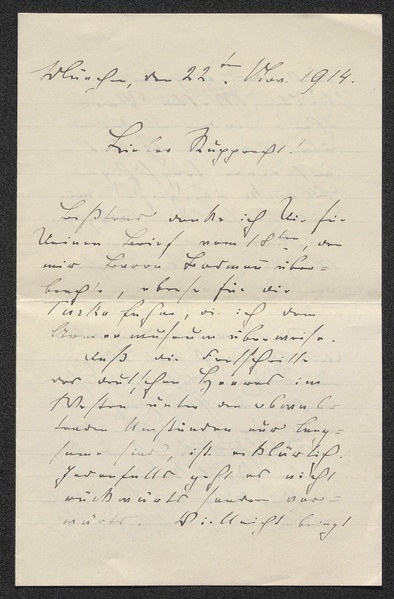 München, den 22ten Nov. 1914.
Lieber Rupprecht!
Bestens danke ich Dir für
Deinen Brief vom 18ten, den
mir Baron Bodman über-
brachte, ebenso für die
Turkofahne, die ich dem
Armeemuseum überweise.
Daß die Fortschritte
des deutschen Heeres im
Westen unter den obwal-
tenden Umständen nur lang-
same sind, ist erklärlich.
Jedenfalls geht es nicht
rückwärts sondern vor-
wärts. Vielleicht bringt